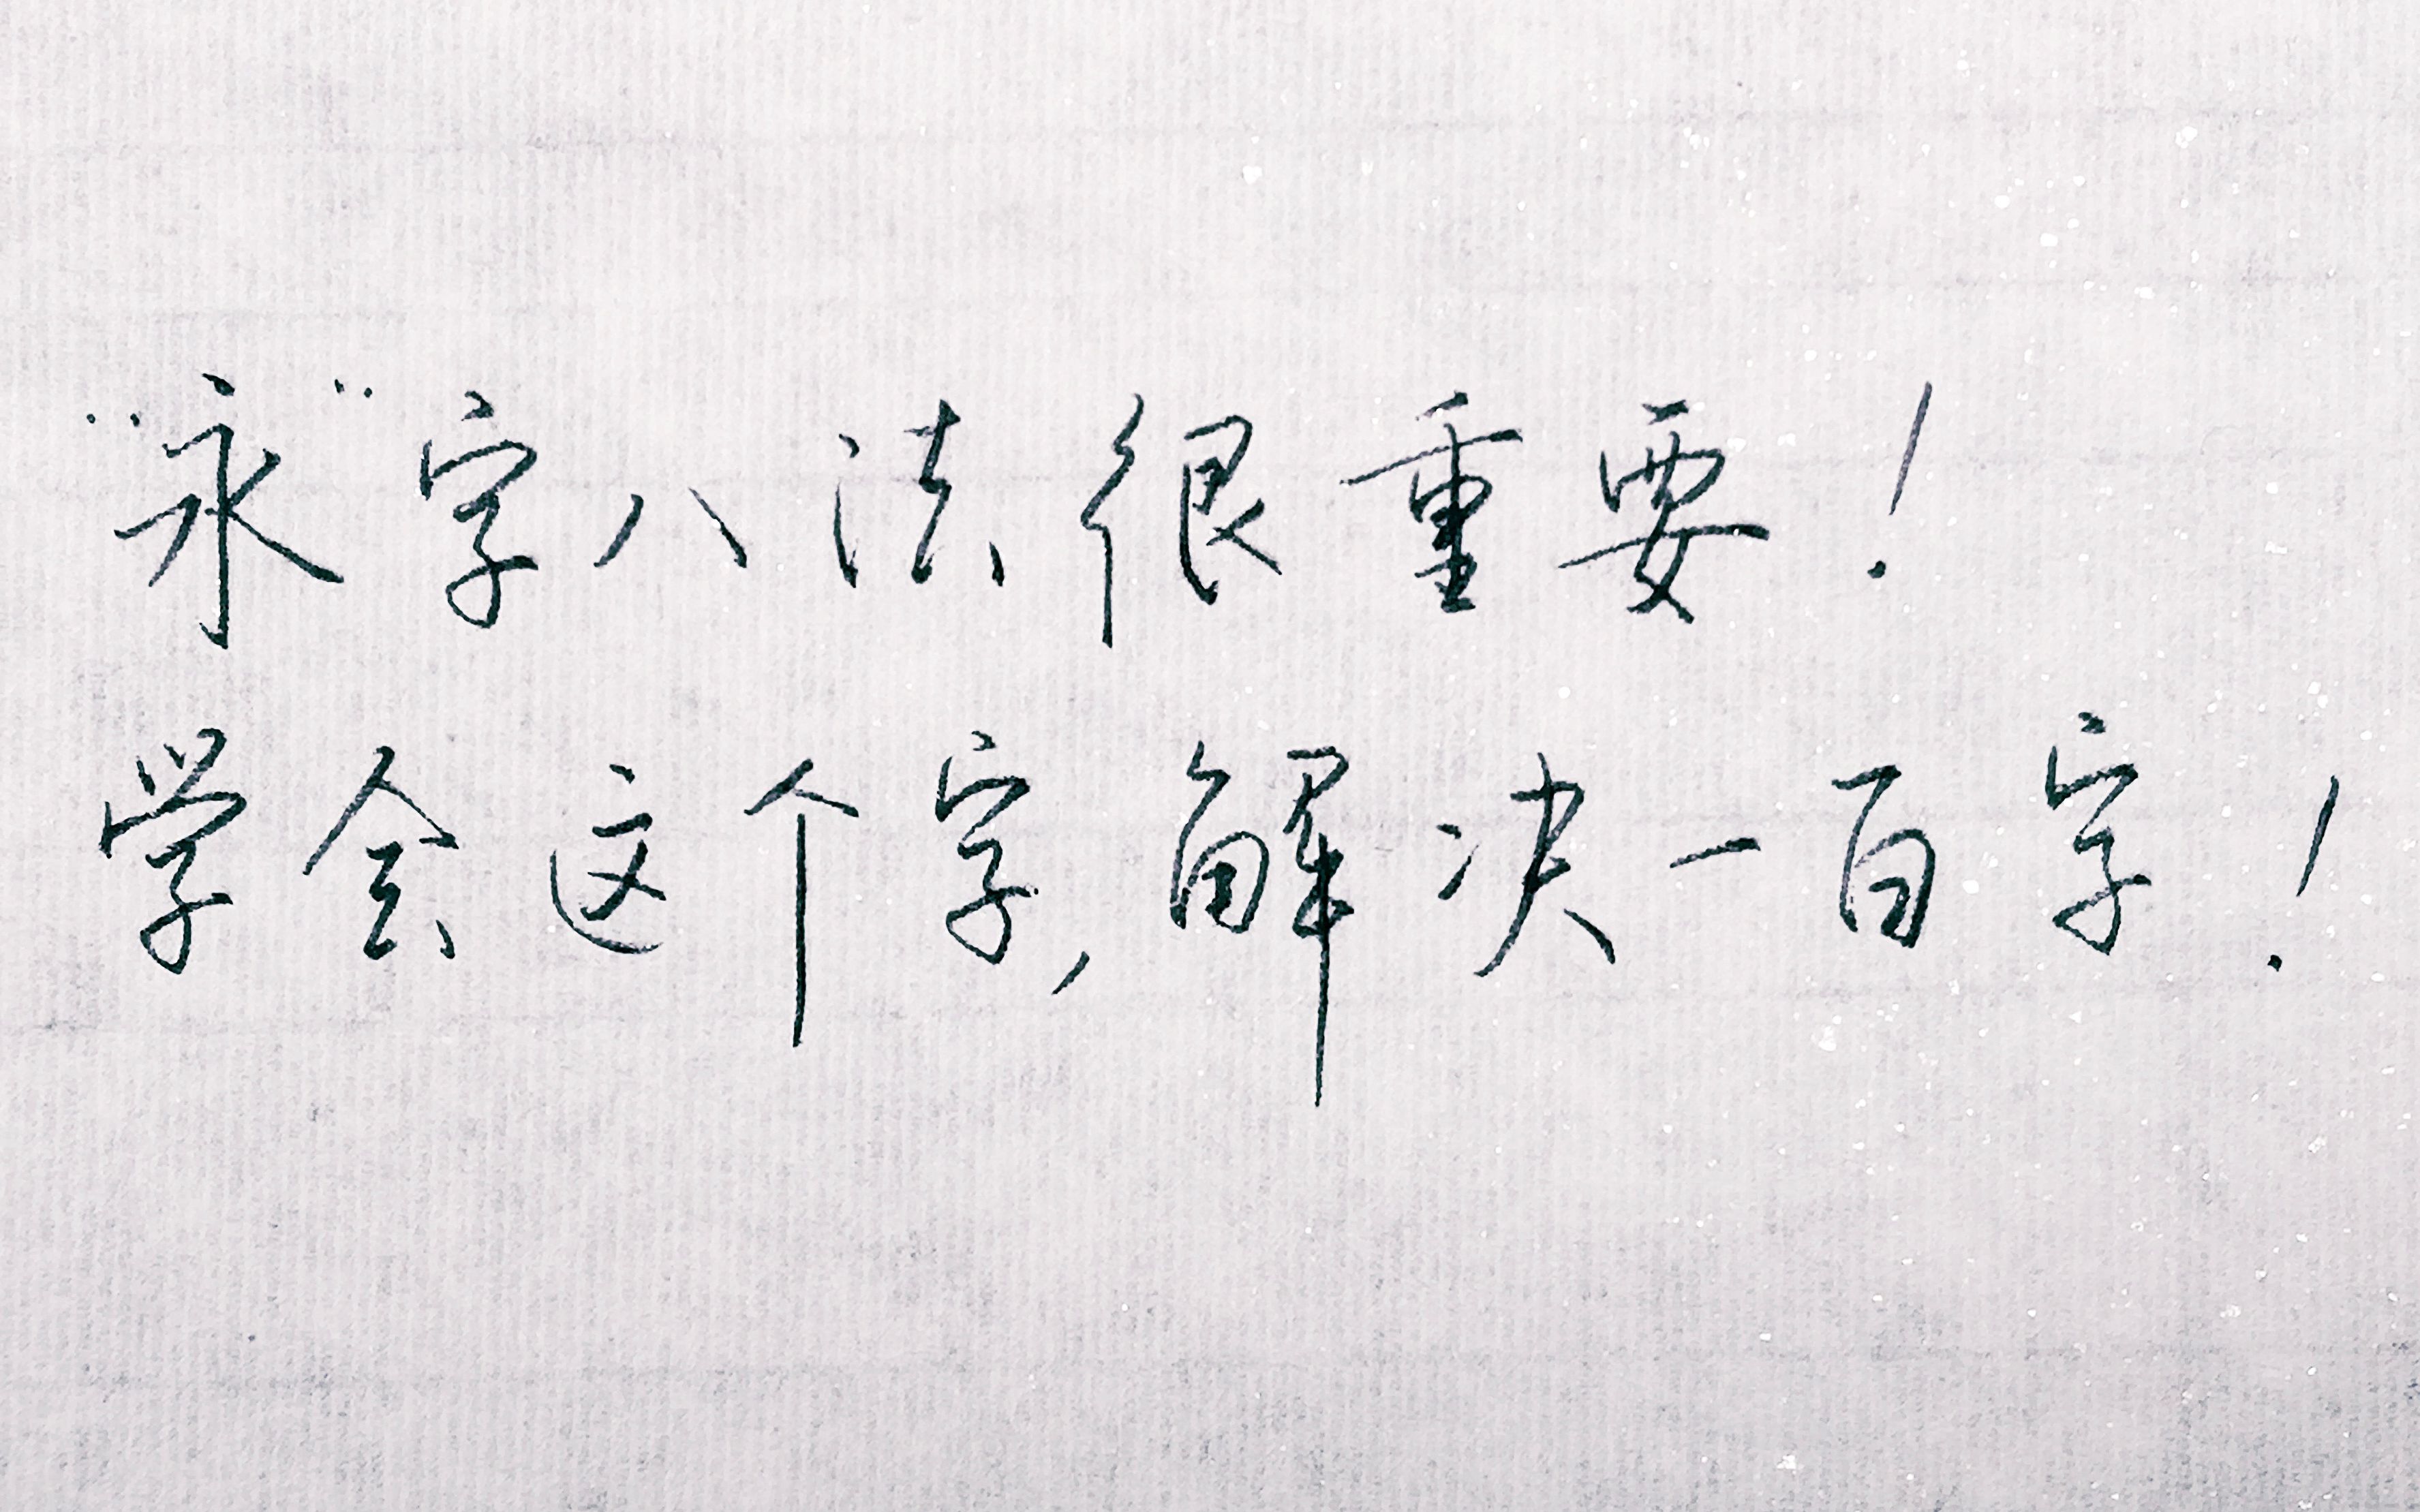 “永”字八法很重要！
学会这个字，解决一百字！